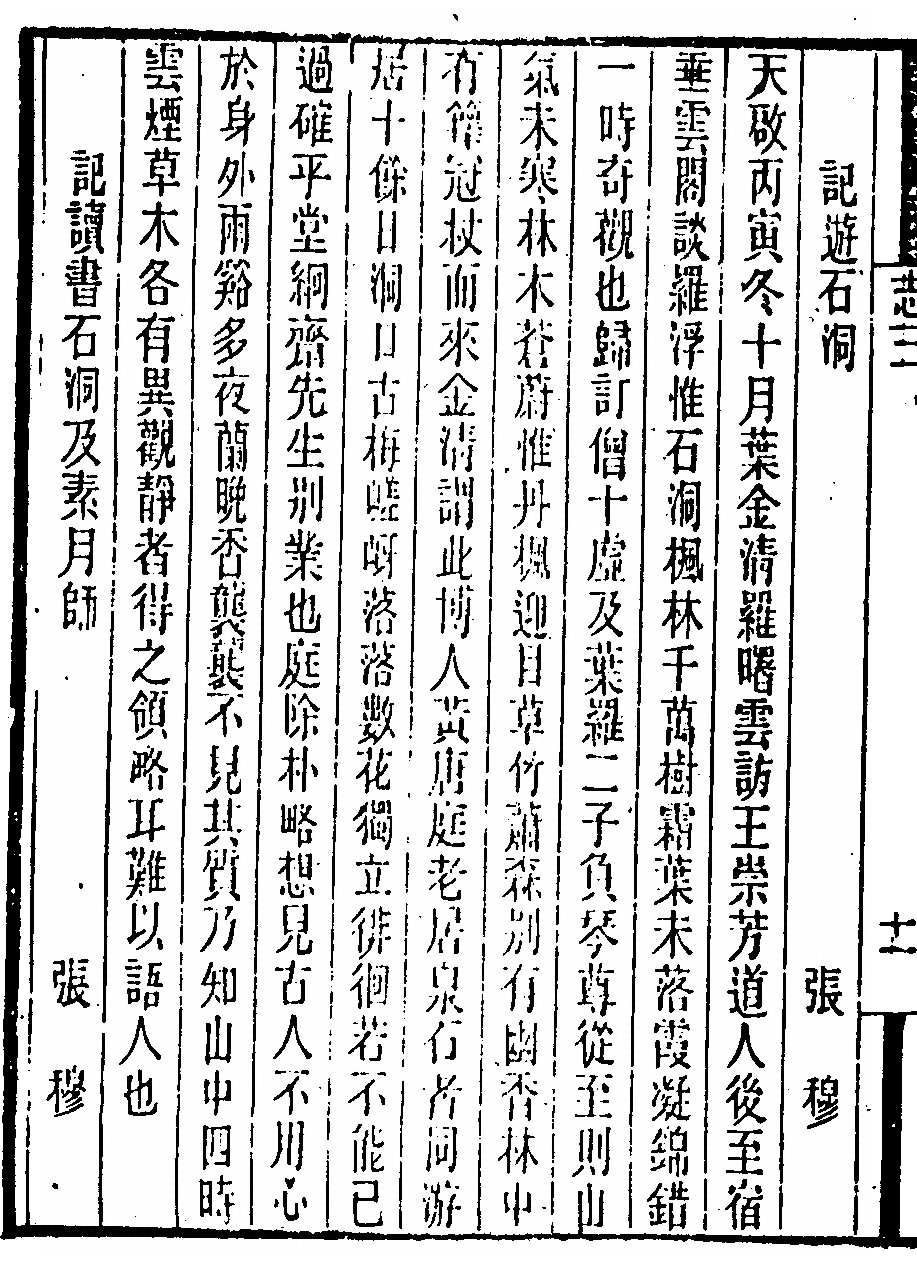 志三
十一
記遊石洞 張穆
天啟丙寅冬十月葉金清羅曙雲訪王崇芳道人後至宿
垂雲閣談羅浮惟石洞楓林千萬樹霜葉未落霞凝錦錯
一時奇觀也歸訂僧十虛及葉羅二子負琴尊從至則山
氣未寒林木蒼蔚惟丹楓迎目草竹蕭森別有幽香林中
有籜冠杖而來金清謂此博人黃唐庭老居泉石者同游
居十餘日洞口古梅嵯岈落落數花獨立徘徊若不能已
過確乎堂絅齋先生別業也庭除朴略想見古人不用心
於身外雨谿多夜蘭晚香襲襲不見其質乃知山中四時
雲煙草木各有異觀靜者得之領略耳難以語人也
記讀書石洞及素月師 張穆